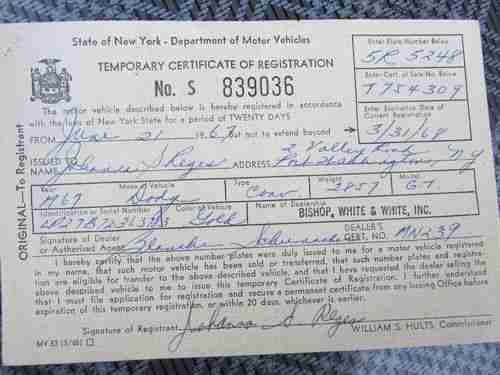 State of New York - Department of Motor Vehicles
TEMPORARY CERTIFICATE OF REGISTRATION
No. S 839036
Enter Plate Number Below
5R 5248
Enter Cert. of Sale No. Below
T754309
Enter Expiration Date of Current Registration
3/31/68
The motor vehicle described below is hereby registered in accordance
with the laws of New York State for a period of TWENTY DAYS
FROM June 21 1967 but not to extend beyond
ISSUED TO
NAME Johanna S Reyes ADDRESS 2 Valley Road
Port Washington, NY
Year Make of Vehicle Type Weight Model
1967 Dodg Conv 2857 G.T.
Identification or Serial Number Color Name of Dealership
Gold BISHOP, WHITE & WHITE, INC.
Signature of Dealer or Authorized Agent Blanche DEALER'S CERT. NO. MN239
I hereby certify that the above number plates were duly issued to me for a motor vehicle registered
in my name, that such motor vehicle has been sold or transferred, that such number plates and registra-
tion are eligible for transfer to the above described vehicle, and that I have requested the dealer selling the
above described vehicle to me to issue this temporary Certificate of Registration. I further understand
that I must file application for registration and secure a permanent certificate from any Issuing Office before
expiration of this temporary registration, or within 20 days, whichever is earlier.
Signature of Registrant Johanna S. Reyes
WILLIAM S. HULTS, Commissioner
MV-53 (5/66)
ORIGINAL—To Registrant